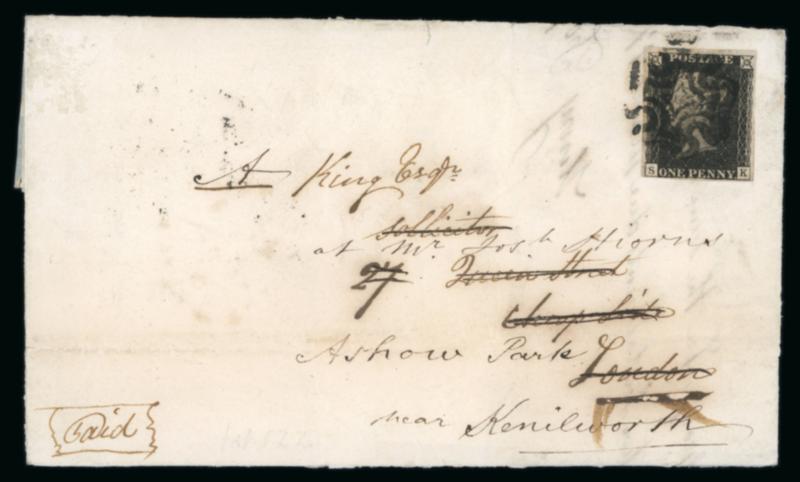 POSTAGE
S K
ONE PENNY
A King Esqr
Sollicitor
at Mr Josh Thorns
27 Queen Street
Cheapside
Ashow Park
London
near Kenilworth
Paid